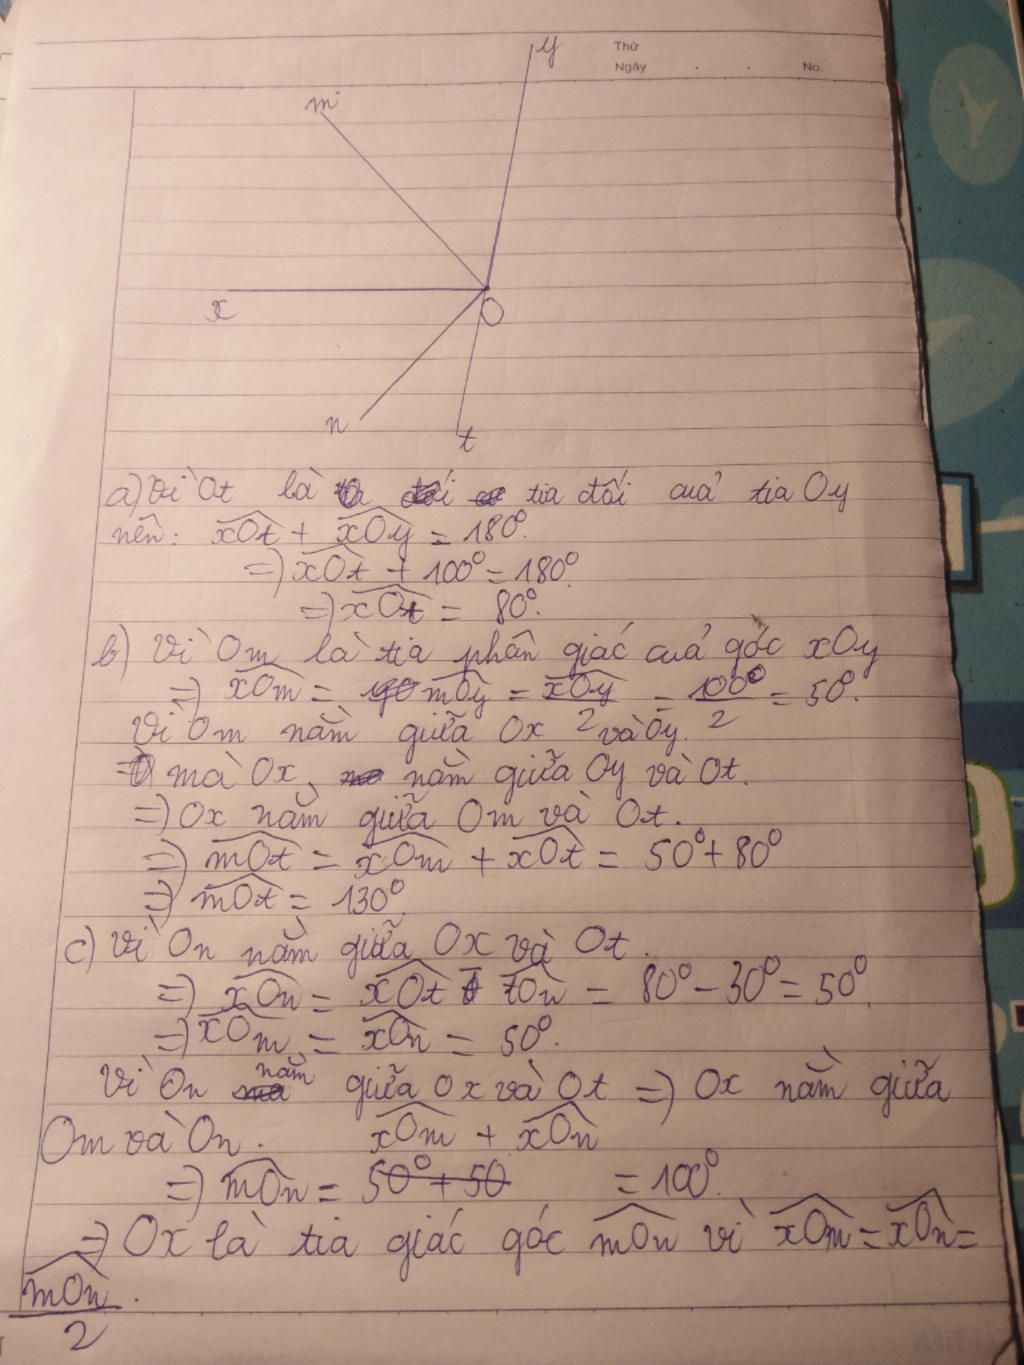 Thứ
Ngày . . No.
y
m
x
O
n
t
a) Vì Ot là tia đối của tia Oy
nên: xOt + xOy = 180°.
=) xOt + 100° = 180°.
=) xOt = 80°.
b) Vì Om là tia phân giác của góc xOy
=) xOm = mOy = xOy/2 = 100°/2 = 50°.
Vì Om nằm giữa Ox và Oy.
mà Ox nằm giữa Oy và Ot.
=) Ox nằm giữa Om và Ot.
=) mOt = xOm + xOt = 50° + 80°
=) mOt = 130°.
c) Vì On nằm giữa Ox và Ot.
=) xOn = xOt - tOn = 80° - 30° = 50°.
=) xOm = xOn = 50°.
Vì On nằm giữa Ox và Ot =) Ox nằm giữa
Om và On. xOm + xOn
=) mOn = 50° + 50 = 100°.
=) Ox là tia giác góc mOn vì xOm = xOn =
mOn/2.